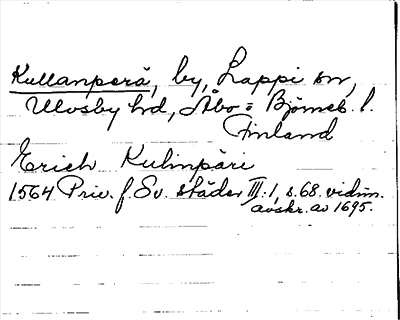 Kullanperä, by, Lappi sn,
Ulvsby hd, Åbo = Björneb. l.
Finland
Erich Kulinpäri
1564 Priv. f. Sv. städer III:1, s. 68. vidim.
avskr. av 1695.